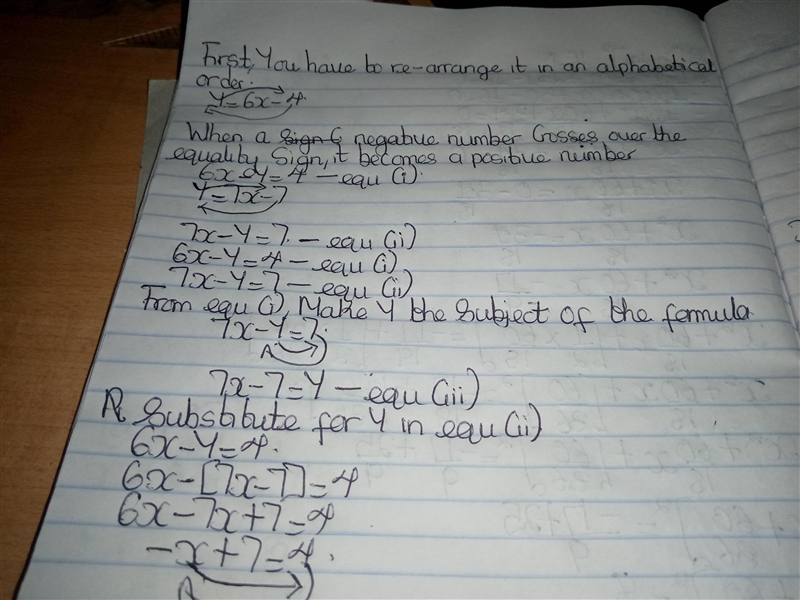 First, You have to re-arrange it in an alphabetical
order.
Y=6x-4.
When a negative number Crosses over the
equality Sign, it becomes a positive number
6x-Y=4 - equ(i).
Y=7x-7
7x-Y=7. - equ(ii)
6x-Y=4 - equ(i)
7x-Y=7 - equ(ii)
From equ(i), Make Y the Subject of the formula
7x-Y=7.
7x-7=Y - equ(iii)
Substitute for Y in equ(ii)
6x-Y=4.
6x-[7x-7]=4
6x-7x+7=4
-x+7=4.